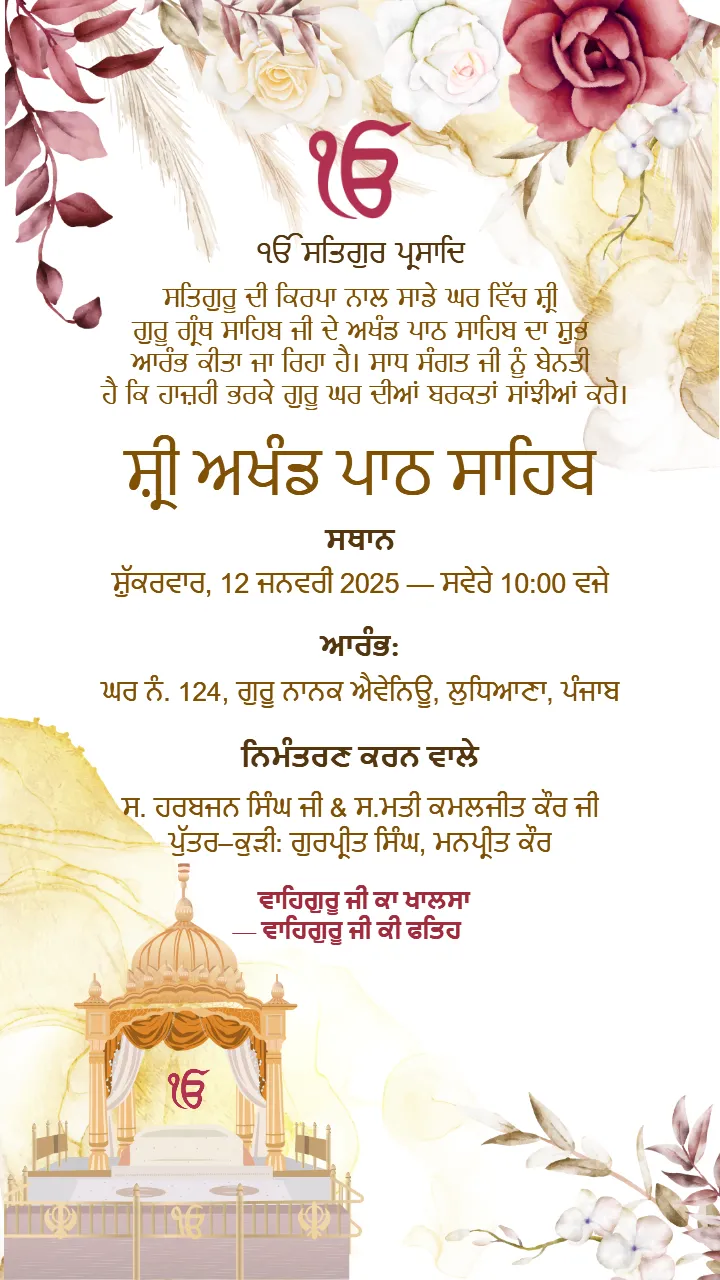 ੴ
ੴ ਸਤਿਗੁਰ ਪ੍ਰਸਾਦਿ
ਸਤਿਗੁਰੂ ਦੀ ਕਿਰਪਾ ਨਾਲ ਸਾਡੇ ਘਰ ਵਿੱਚ ਸ਼੍ਰੀ
ਗੁਰੂ ਗ੍ਰੰਥ ਸਾਹਿਬ ਜੀ ਦੇ ਅਖੰਡ ਪਾਠ ਸਾਹਿਬ ਦਾ ਸ਼ੁਭ
ਆਰੰਭ ਕੀਤਾ ਜਾ ਰਿਹਾ ਹੈ। ਸਾਧ ਸੰਗਤ ਜੀ ਨੂੰ ਬੇਨਤੀ
ਹੈ ਕਿ ਹਾਜ਼ਰੀ ਭਰਕੇ ਗੁਰੂ ਘਰ ਦੀਆਂ ਬਰਕਤਾਂ ਸਾਂਝੀਆਂ ਕਰੋ।
ਸ਼੍ਰੀ ਅਖੰਡ ਪਾਠ ਸਾਹਿਬ
ਸਥਾਨ
ਸ਼ੁੱਕਰਵਾਰ, 12 ਜਨਵਰੀ 2025 — ਸਵੇਰੇ 10:00 ਵਜੇ
ਆਰੰਭ:
ਘਰ ਨੰ. 124, ਗੁਰੂ ਨਾਨਕ ਐਵੇਨਿਊ, ਲੁਧਿਆਣਾ, ਪੰਜਾਬ
ਨਿਮੰਤਰਣ ਕਰਨ ਵਾਲੇ
ਸ. ਹਰਬਜਨ ਸਿੰਘ ਜੀ & ਸ.ਮਤੀ ਕਮਲਜੀਤ ਕੌਰ ਜੀ
ਪੁੱਤਰ–ਕੁੜੀ: ਗੁਰਪ੍ਰੀਤ ਸਿੰਘ, ਮਨਪ੍ਰੀਤ ਕੌਰ
ਵਾਹਿਗੁਰੂ ਜੀ ਕਾ ਖਾਲਸਾ
— ਵਾਹਿਗੁਰੂ ਜੀ ਕੀ ਫਤਿਹ
ੴ
ੴ